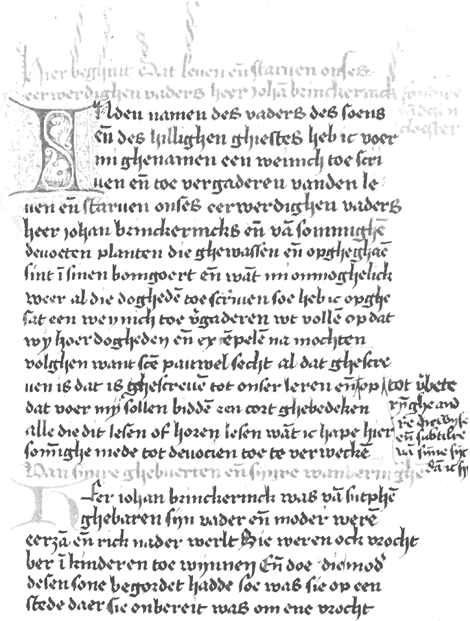 Hier beghint dat leuen eñ staruen onses
eerwerdighen vaders heer johā brinckerinck
INden namen des vaders des soens
eñ des hillighen ghiestes heb ic voer
mi ghenamen een weinich toe scri
uen eñ toe vergaderen vanden le
uen eñ staruen onses eerwerdighen vaders
heer johan brinckerincks eñ vā sommighē
deuoeten planten die ghewassen eñ opghegaē
sint ī sinen bomgoert eñ wāt mi onmoghelick
weer al die doghedē toe scriuen soe heb ic opghe
sat een weynich toe v̄gaderen wt vollē op dat
wy hoer dogheden eñ exēpelē na mochten
volghen want scē pauwel secht al dat ghescre
uen is dat is ghescreuē tot onser leren eñ op
dat voer mȳ sollen biddē een cort ghebedeken
alle die dit lesen of horen lesen wāt ic hape hier
somīghe mede tot deuocien toe te verweckē
tot v̄bete
rȳghe and
eñ subtilre
Van sijnre ghebuerten eñ sijnre wanderinghe
Her iohan brinckerinck was vā sutphē
ghebaren sijn vader eñ moder werē
eerzā eñ rick nader werlt Sie weren ock vrocht
ber ī kinderen toe wynnen Eñ doe die mod̄
desen sone begordet hadde soe was sie op een
stede daer sie onbereit was om ene vrocht